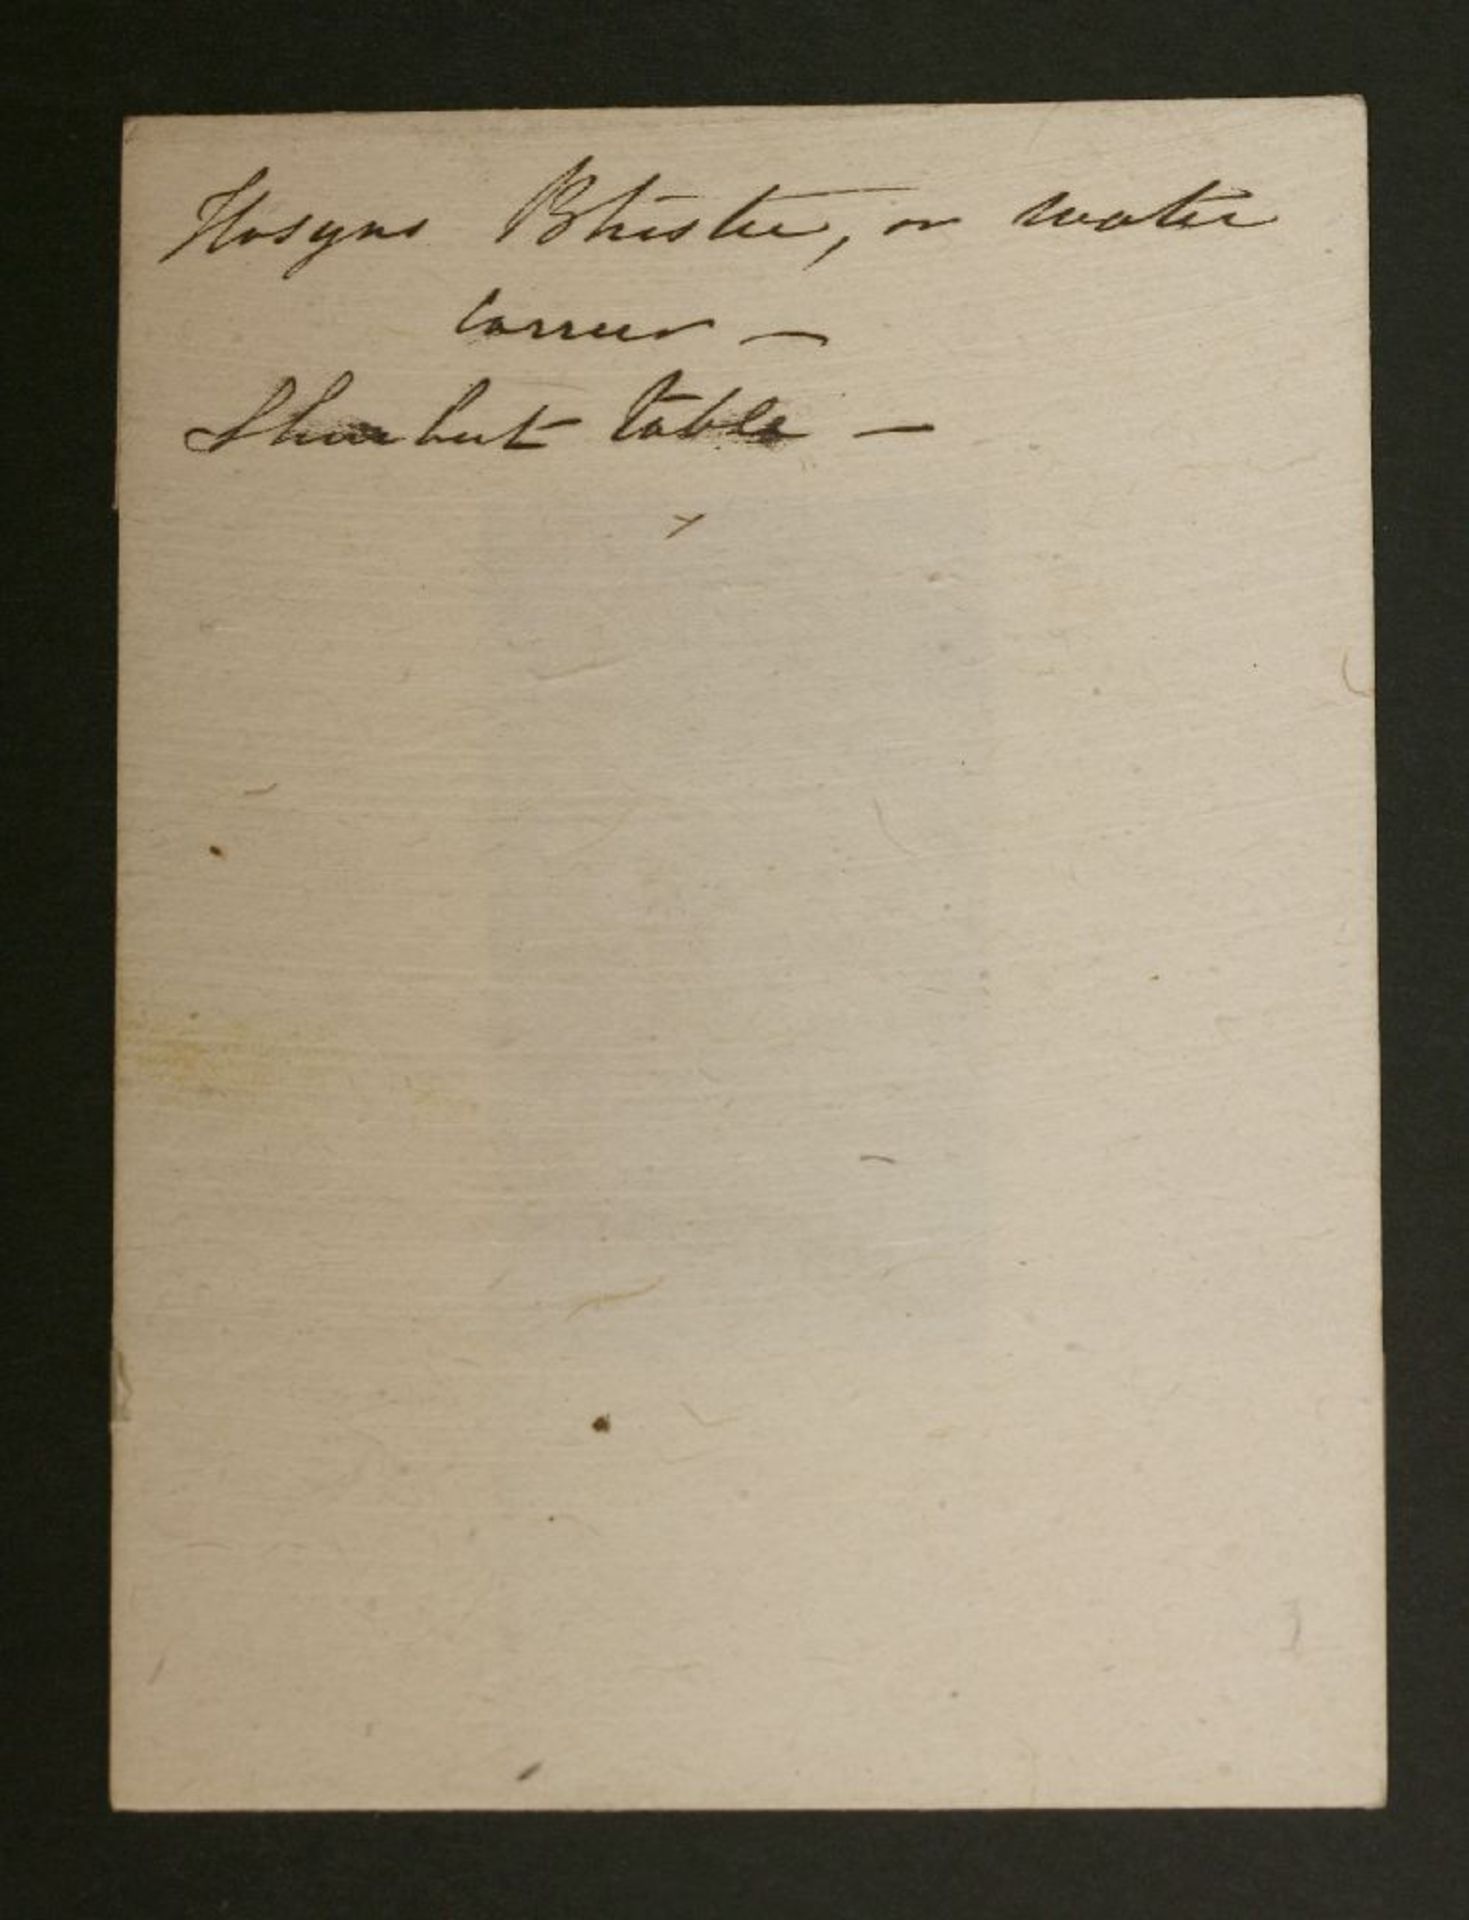 Hosyns Bhistee, or water
carrier —
Shurbut table —